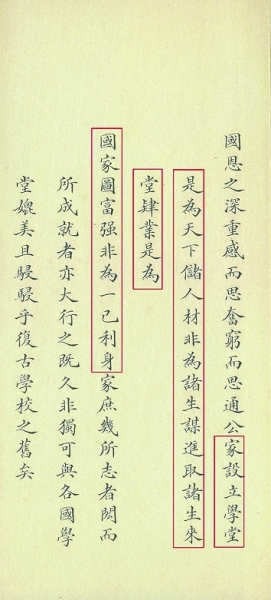 國恩之深重感而思奮窮而思通公家設立學堂
是為天下儲人材非為諸生謀進取諸生來
堂肄業是為
國家圖富强非為一己利身家庶幾所志者閎而
所成就者亦大行之既久非獨可與各國學
堂媲美且駸駸乎復古學校之舊矣